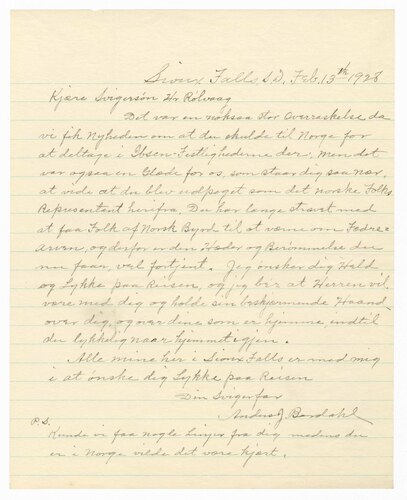 Sioux Falls S.D. Feb. 13th 1928
Kjære Svigersøn Hr Rølvaag
Det var en noksaa stor Overraskelse, da
vi fik Nyheden om at du skulde til Norge for
at deltage i Ibsen-Festlighederne der, men det
var ogsaa en Glæde for os, som staar dig saa nær,
at vide at du blev udpeget som det norske Folks
Representant herifra. Du har længe strævt med
at faa Folk af Norsk Byrd til at værne om Fædre-
Arven, og derfor er den Hæder og Berømmelse du
nu faar, vel fortjent. Jeg ønsker dig Held
og Lykke paa Reisen, og jeg ber at Herren vil
være med dig og holde sin beskjærmende Haand
over dig, og over dine som er hjemme indtil
du lykkelig naar hjemmet igjen.
Alle mine her i Sioux Falls er med mig
i at ønske dig Lykke paa Reisen
Din Svigerfar
Andrew J. Berdahl
P.S.
Kunde vi faa nogle Linjer fra dig medens du
er i Norge vilde det være kjært.